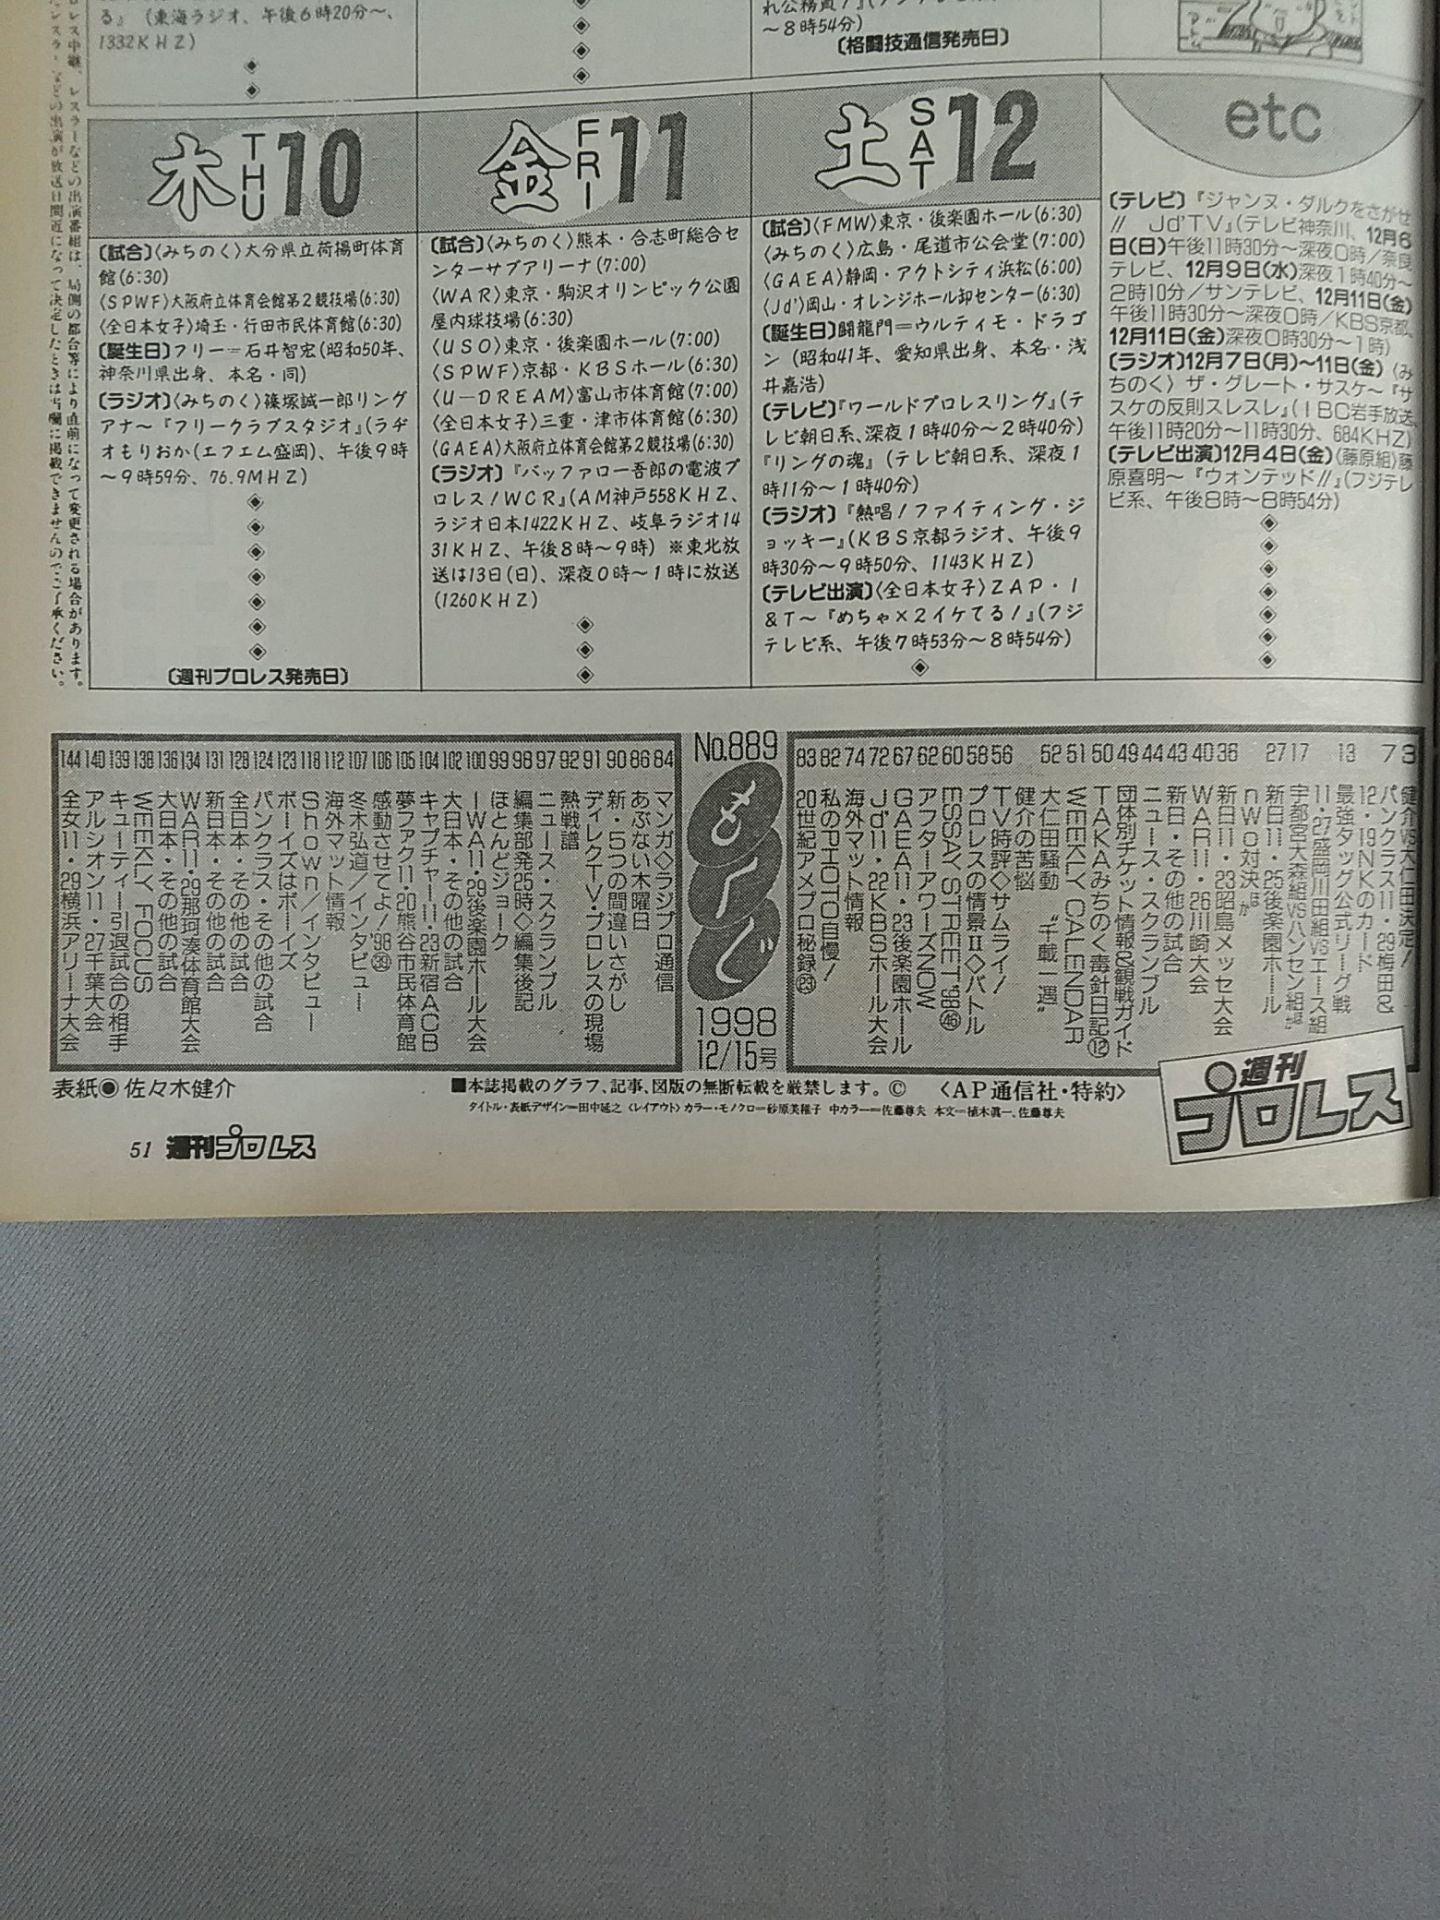 る』（東海ラジオ、午後６時20分〜、
1332ＫＨＺ）
〜８時54分）
〔格闘技通信発売日〕
木 THU 10
〔試合〕〈みちのく〉大分県立荷揚町体育
館（6:30）
〈ＳＰＷＦ〉大阪府立体育会館第２競技場（6:30）
〈全日本女子〉埼玉・行田市民体育館（6:30）
〔誕生日〕フリー＝石井智宏（昭和50年、
神奈川県出身、本名・同）
〔ラジオ〕〈みちのく〉篠塚誠一郎リング
アナ〜『フリークラブスタジオ』（ラヂ
オもりおか（エフエム盛岡）、午後９時
〜９時59分、76.9ＭＨＺ）
〔週刊プロレス発売日〕
金 FRI 11
〔試合〕〈みちのく〉熊本・合志町総合セ
ンターサブアリーナ（7:00）
〈ＷＡＲ〉東京・駒沢オリンピック公園
屋内球技場（6:30）
〈ＵＳＯ〉東京・後楽園ホール（7:00）
〈ＳＰＷＦ〉京都・ＫＢＳホール（6:30）
〈Ｕ−ＤＲＥＡＭ〉富山市体育館（7:00）
〈全日本女子〉三重・津市体育館（6:30）
〈ＧＡＥＡ〉大阪府立体育会館第２競技場（6:30）
〔ラジオ〕『バッファロー吾郎の電波プ
ロレス！ＷＣＲ』（ＡＭ神戸558ＫＨＺ、
ラジオ日本1422ＫＨＺ、岐阜ラジオ14
31ＫＨＺ、午後８時〜９時）※東北放
送は13日（日）、深夜０時〜１時に放送
（1260ＫＨＺ）
土 SAT 12
〔試合〕〈ＦＭＷ〉東京・後楽園ホール（6:30）
〈みちのく〉広島・尾道市公会堂（7:00）
〈ＧＡＥＡ〉静岡・アクトシティ浜松（6:00）
〈Ｊｄ'〉岡山・オレンジホール卸センター（6:30）
〔誕生日〕闘龍門＝ウルティモ・ドラゴ
ン（昭和41年、愛知県出身、本名・浅
井嘉浩）
〔テレビ〕『ワールドプロレスリング』（テ
レビ朝日系、深夜１時40分〜２時40分）
『リングの魂』（テレビ朝日系、深夜１
時11分〜１時40分）
〔ラジオ〕『熱唱！ファイティング・ジ
ョッキー』（ＫＢＳ京都ラジオ、午後９
時30分〜９時50分、1143ＫＨＺ）
〔テレビ出演〕〈全日本女子〉ＺＡＰ・Ｉ
＆Ｔ〜『めちゃ×２イケてる！』（フジ
テレビ系、午後７時53分〜８時54分）
etc
〔テレビ〕『ジャンヌ・ダルクをさがせ
!! Ｊｄ'ＴＶ』（テレビ神奈川、12月６
日（日）午後11時30分〜深夜０時／奈良
テレビ、12月９日（水）深夜１時40分〜
２時10分／サンテレビ、12月11日（金）
午後11時30分〜深夜０時／ＫＢＳ京都、
12月11日（金）深夜０時30分〜１時）
〔ラジオ〕12月７日（月）〜11日（金）〈み
ちのく〉ザ・グレート・サスケ〜『サ
スケの反則スレスレ』（ＩＢＣ岩手放送、
午後11時20分〜11時30分、684ＫＨＺ）
〔テレビ出演〕12月４日（金）〈藤原組〉藤
原喜明〜『ウォンテッド!!』（フジテレ
ビ系、午後８時〜８時54分）
レス中継、レスラーなどの出演番組は、局側の都合等により直前になって変更される場合があります。
などの出演が放送日間近になって決定したときは当欄に掲載できませんのでご了承ください。
3 健介VS大仁田決定！
7 パンクラス11・29梅田＆
12・19ＮＫのカード
13 最強タッグ公式リーグ戦
11・27盛岡川田組VSエース組
17 宇都宮大森組VSハンセン組ほか
27 新日11・25後楽園ホール
ｎＷｏ対決ほか
36 新日11・23昭島メッセ大会
40 ＷＡＲ11・26川崎大会
43 新日・その他の試合
44 ニュース・スクランブル
49 団体別チケット情報＆観戦ガイド
50 ＴＡＫＡみちのく毒針日記⑫
51 ＷＥＥＫＬＹ ＣＡＬＥＮＤＡＲ
52 大仁田騒動 “千載一遇”
健介の苦悩
56 ＴＶ時評◇サムライ！
58 プロレスの情景Ⅱ◇バトル
60 ＥＳＳＡＹ ＳＴＲＥＥＴ'98㊻
62 アフターアワーズＮＯＷ
67 ＧＡＥＡ11・23後楽園ホール
72 Ｊｄ'11・22ＫＢＳホール大会
74 海外マット情報
82 私のＰＨＯＴＯ自慢！
83 20世紀アメプロ秘録㉓
No.889
もくじ
1998
12/15号
84 マンガ◇ラジプロ通信
86 あぶない木曜日
90 新・５つの間違いさがし
91 ディレクＴＶ・プロレスの現場
92 熱戦譜
97 ニュース・スクランブル
98 編集部発25時◇編集後記
99 ほとんどジョーク
100 ＩＷＡ11・29後楽園ホール大会
102 大日本・その他の試合
104 キャプチャー11・23新宿ＡＣＢ
105 夢ファク11・20熊谷市民体育館
106 感動させてよ！'98㊴
107 冬木弘道／インタビュー
112 海外マット情報
118 Ｓｈｏｗｎ／インタビュー
123 ボーイズはボーイズ
124 パンクラス・その他の試合
128 全日本・その他の試合
131 新日本・その他の試合
134 ＷＡＲ11・29那珂湊体育館大会
136 大日本・その他の試合
138 ＷＥＥＫＬＹ ＦＯＣＵＳ
139 キューティー引退試合の相手
140 アルシオン11・27千葉大会
144 全女11・29横浜アリーナ大会
表紙◉佐々木健介
■本誌掲載のグラフ、記事、図版の無断転載を厳禁します。© 〈ＡＰ通信社・特約〉
タイトル・表紙デザイン＝田中延之〈レイアウト〉カラー・モノクロ＝砂原美稚子 中カラー＝佐藤尊夫 本文＝植木眞一、佐藤尊夫
週刊プロレス
51 週刊プロレス